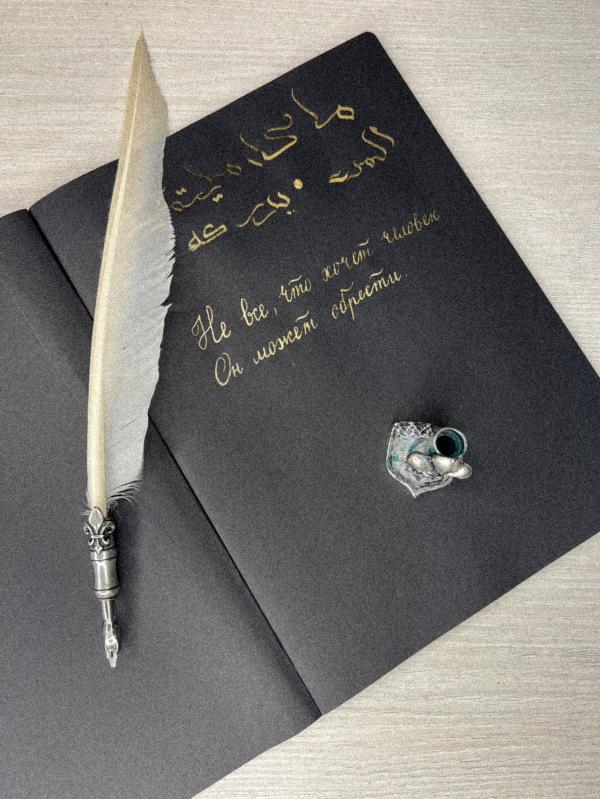 ما كل ما
المرء يدركه
Не все, что хочет человек
Он может обрести.